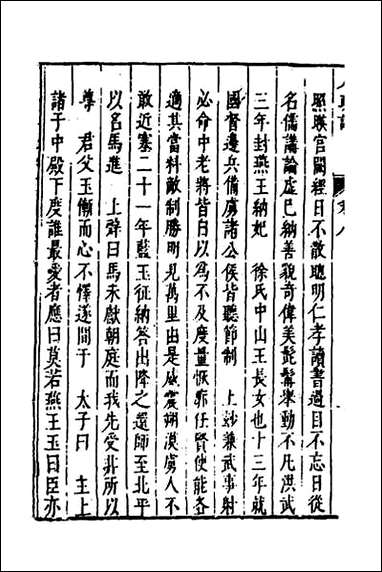 照暎宮闕經日不散聰明仁孝讀書過目不忘日從
名儒講論虛己納善貌奇偉美髭髯舉動不凡洪武
三年封燕王納妃　徐氏中山王長女也十三年就
國督邊兵備虜諸公侯皆聽節制　上妙兼武事射
必命中老將皆自以為不及度量恢廓任賢使能各
適其當料敵制勝明見萬里由是威震朔漠虜人不
敢近塞二十一年藍玉征納答出降之還師至北平
以名馬進　上辭曰馬未獻朝庭而我先受非所以
尊　君父玉慚而心不懌遂間于　太子曰　主上
諸子中殿下度誰最愛者應曰莫若燕王玉曰臣亦